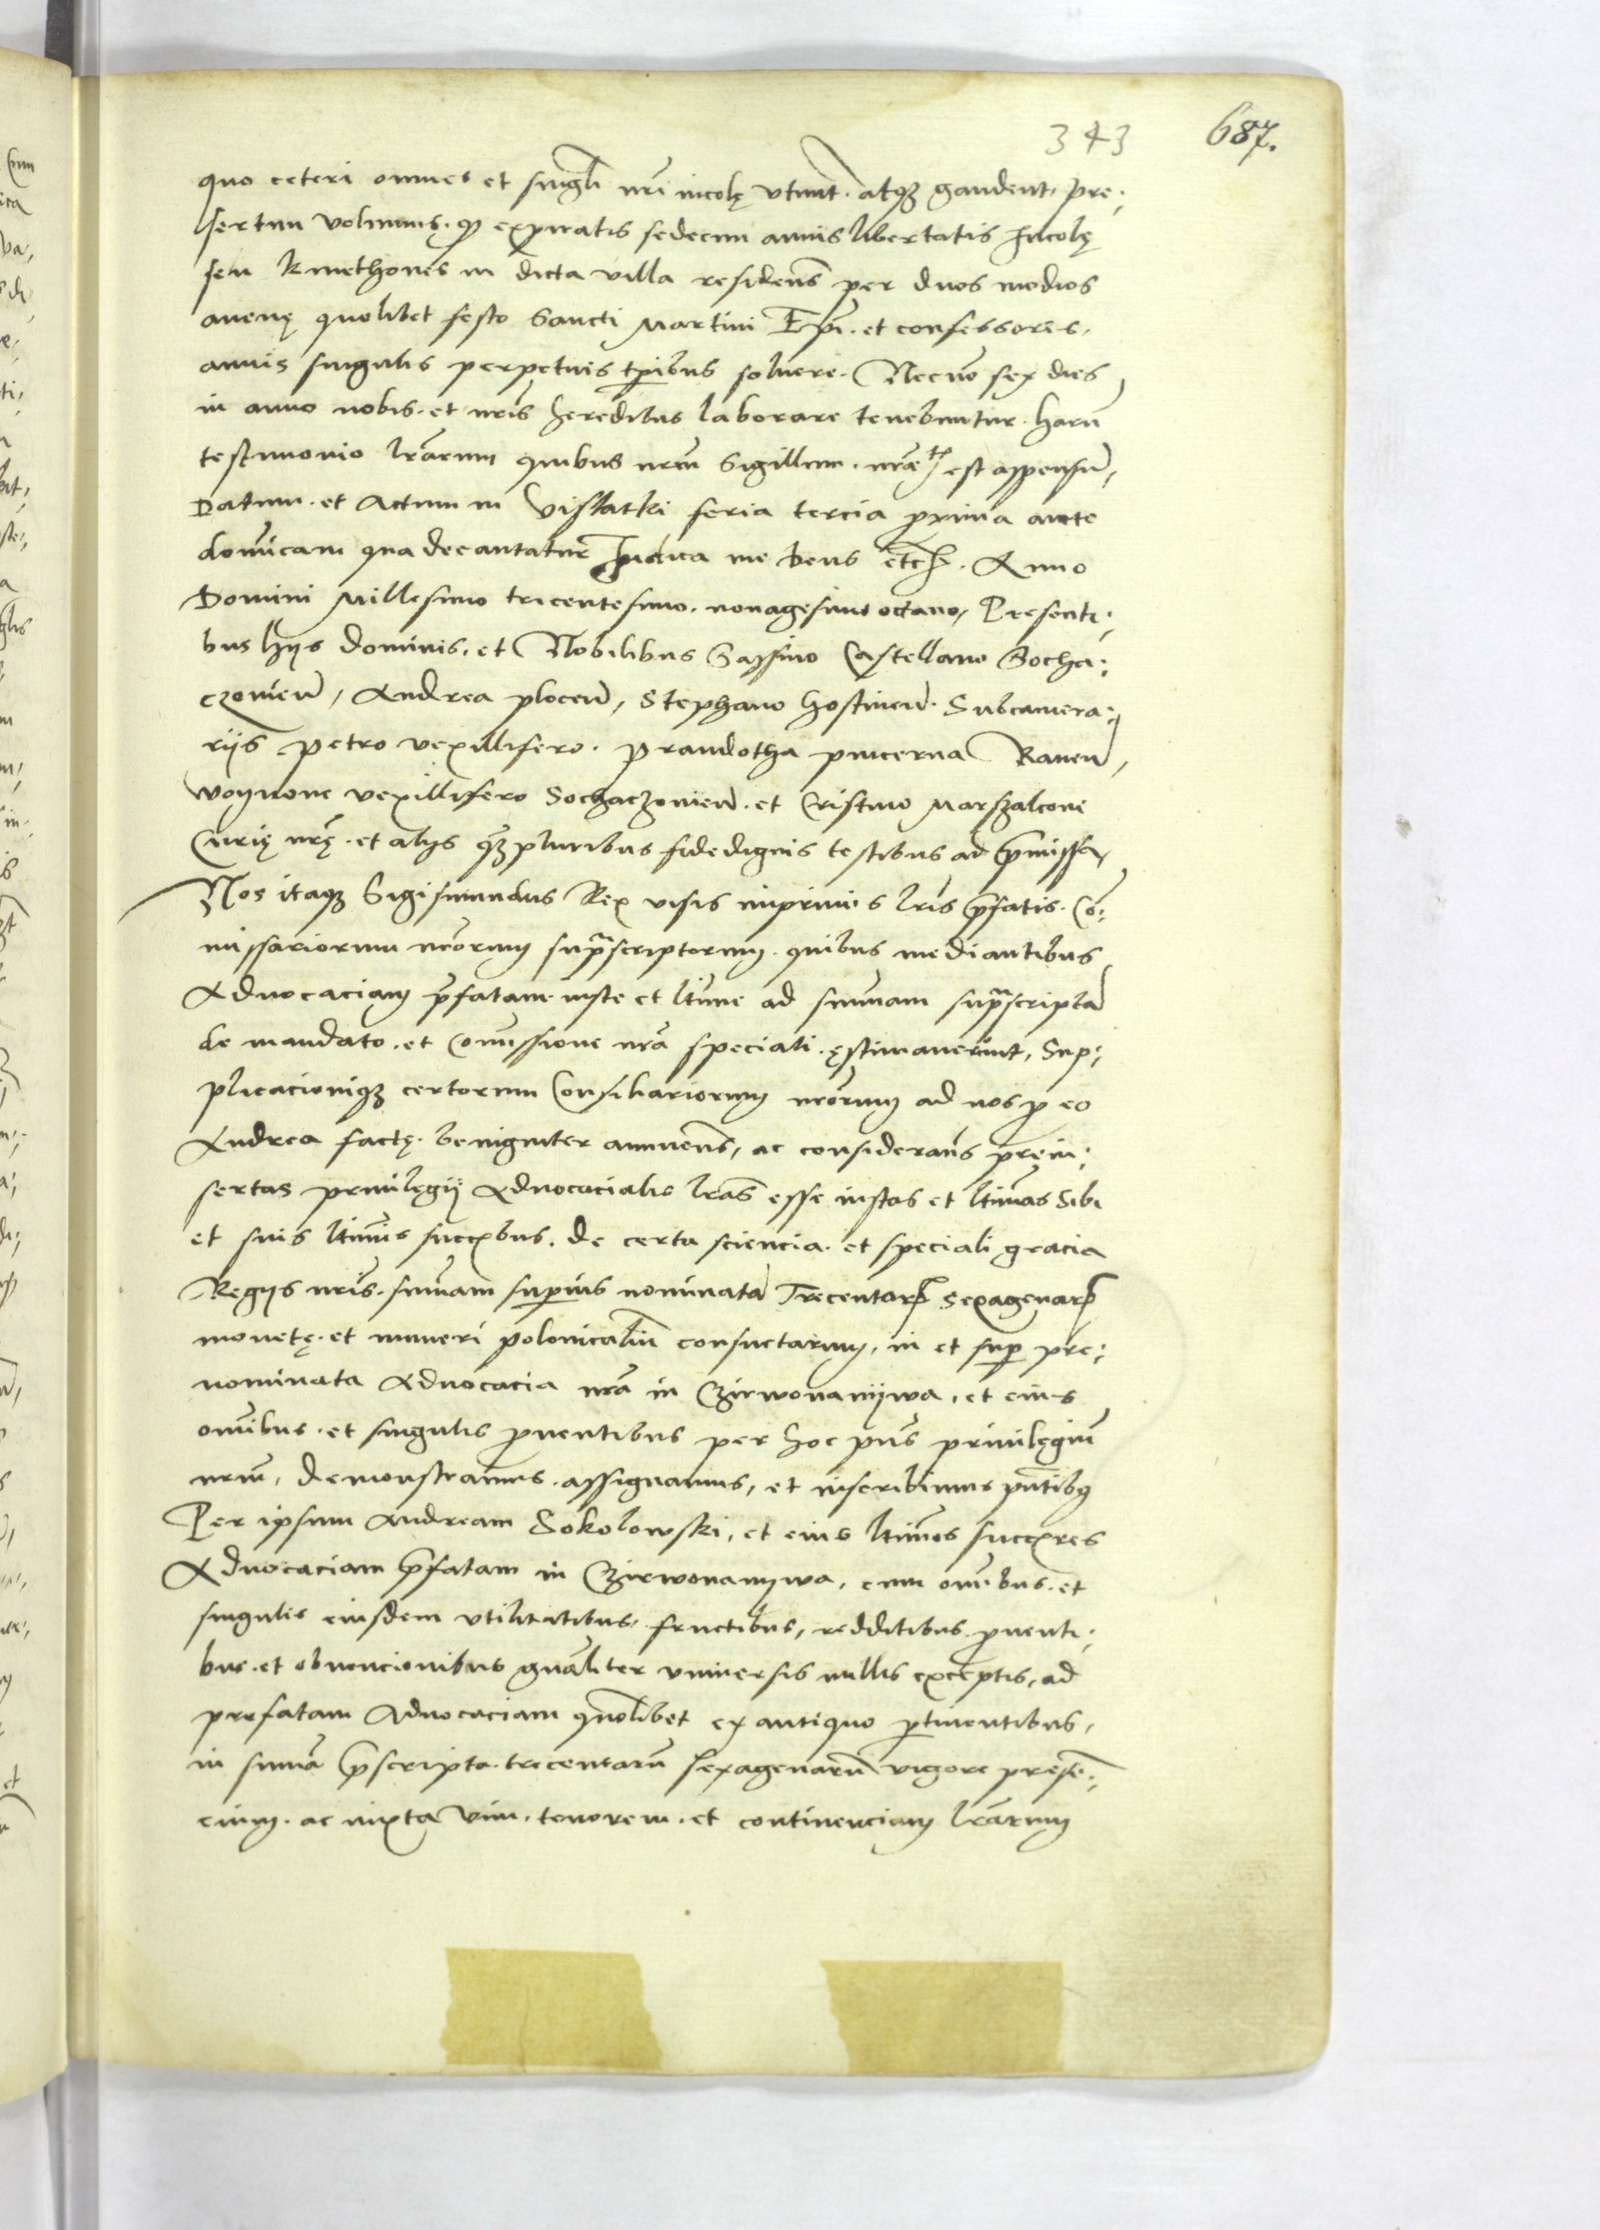 343 687.
quo ceteri omnes et singli nri incolę vtunt. atqz gaudent, pre:
sertim volumus, qd expiratis sedecim annis libertatis Incolę
seu kmethones in dicta villa residens per duos modios
auenę quolibet festo Sancti Martini Epi. et confessoris,
annis singulis perpetuis tpribus soluere. Necno sex dies
in anno nobis. et nris heredibus laborare tenebuntur. harū
testimonio lrarum quibus nrm Sigillum. est appensū,
Datum. et Actum in Viskatki feria tercia proxima ante
domicam qua decantatur Iudica me deus etc. Anno
Domini Millesimo tricentesimo. nonagesimo octauo, Presenti:
bus hijs dominis. et Nobilibus Sassino Castellano Socha:
czouien, Andrea plocen, Stephano Gostinen. Subcamera:
rijs Petro vexillifero. Prandotha pincerna Rauen,
woynone vexillifero Sochaczouien. et Cristino Marszalcone
Curię nrę. et alijs qz pluribus fidedignis testibus ad pmissa,
Nos itaqz Sigismundus Rex visis inprimis lris pfatis. Co:
missariorum nrorum suprascriptorum. quibus mediantibus
Aduocaciam pfatam iuste et ltime ad sumam suprascriptā
de mandato. et Comissione nra speciali. ęstimauerunt, Sup:
plicacioniqz certorum Consiliariorum nrorum ad nos p eo
Andrea factę. benigniter annuens, ac considerans pręin:
sertas priuilęgij Aduocacialis lras esse iustas et ltimas Sibi
et suis ltimis succribus. de certa sciencia. et speciali gracia
Regijs nris. sumam superius nominatā Trecentar Sexagenar
monetę. et numeri polonicaliu consuetarum, in et super pre:
nominata Aduocacia nra in Czirwonanijwa, et eius
omibus. et singulis prouentibus per hoc pns priuilęgiū
nrm, demonstramus. assignamus, et inscribimus pntibus
Per ipsum Andream Sokolowski, et eius ltimos succres
Aduocaciam pfatam in Czirwonanywa, cum omibus. et
singulis eiusdem vtilitatibus, fructibus, redditibus prouenti:
bus. et obuencionibus gnaliter vniuersis nullis exceptis, ad
prefatam Aduocaciam quolibet ex antiquo ptinentibus,
in suma pscripta trecentarū sexagenarū vigore presen:
cium. ac iuxta vim. tenorem. et continenciam lrarum